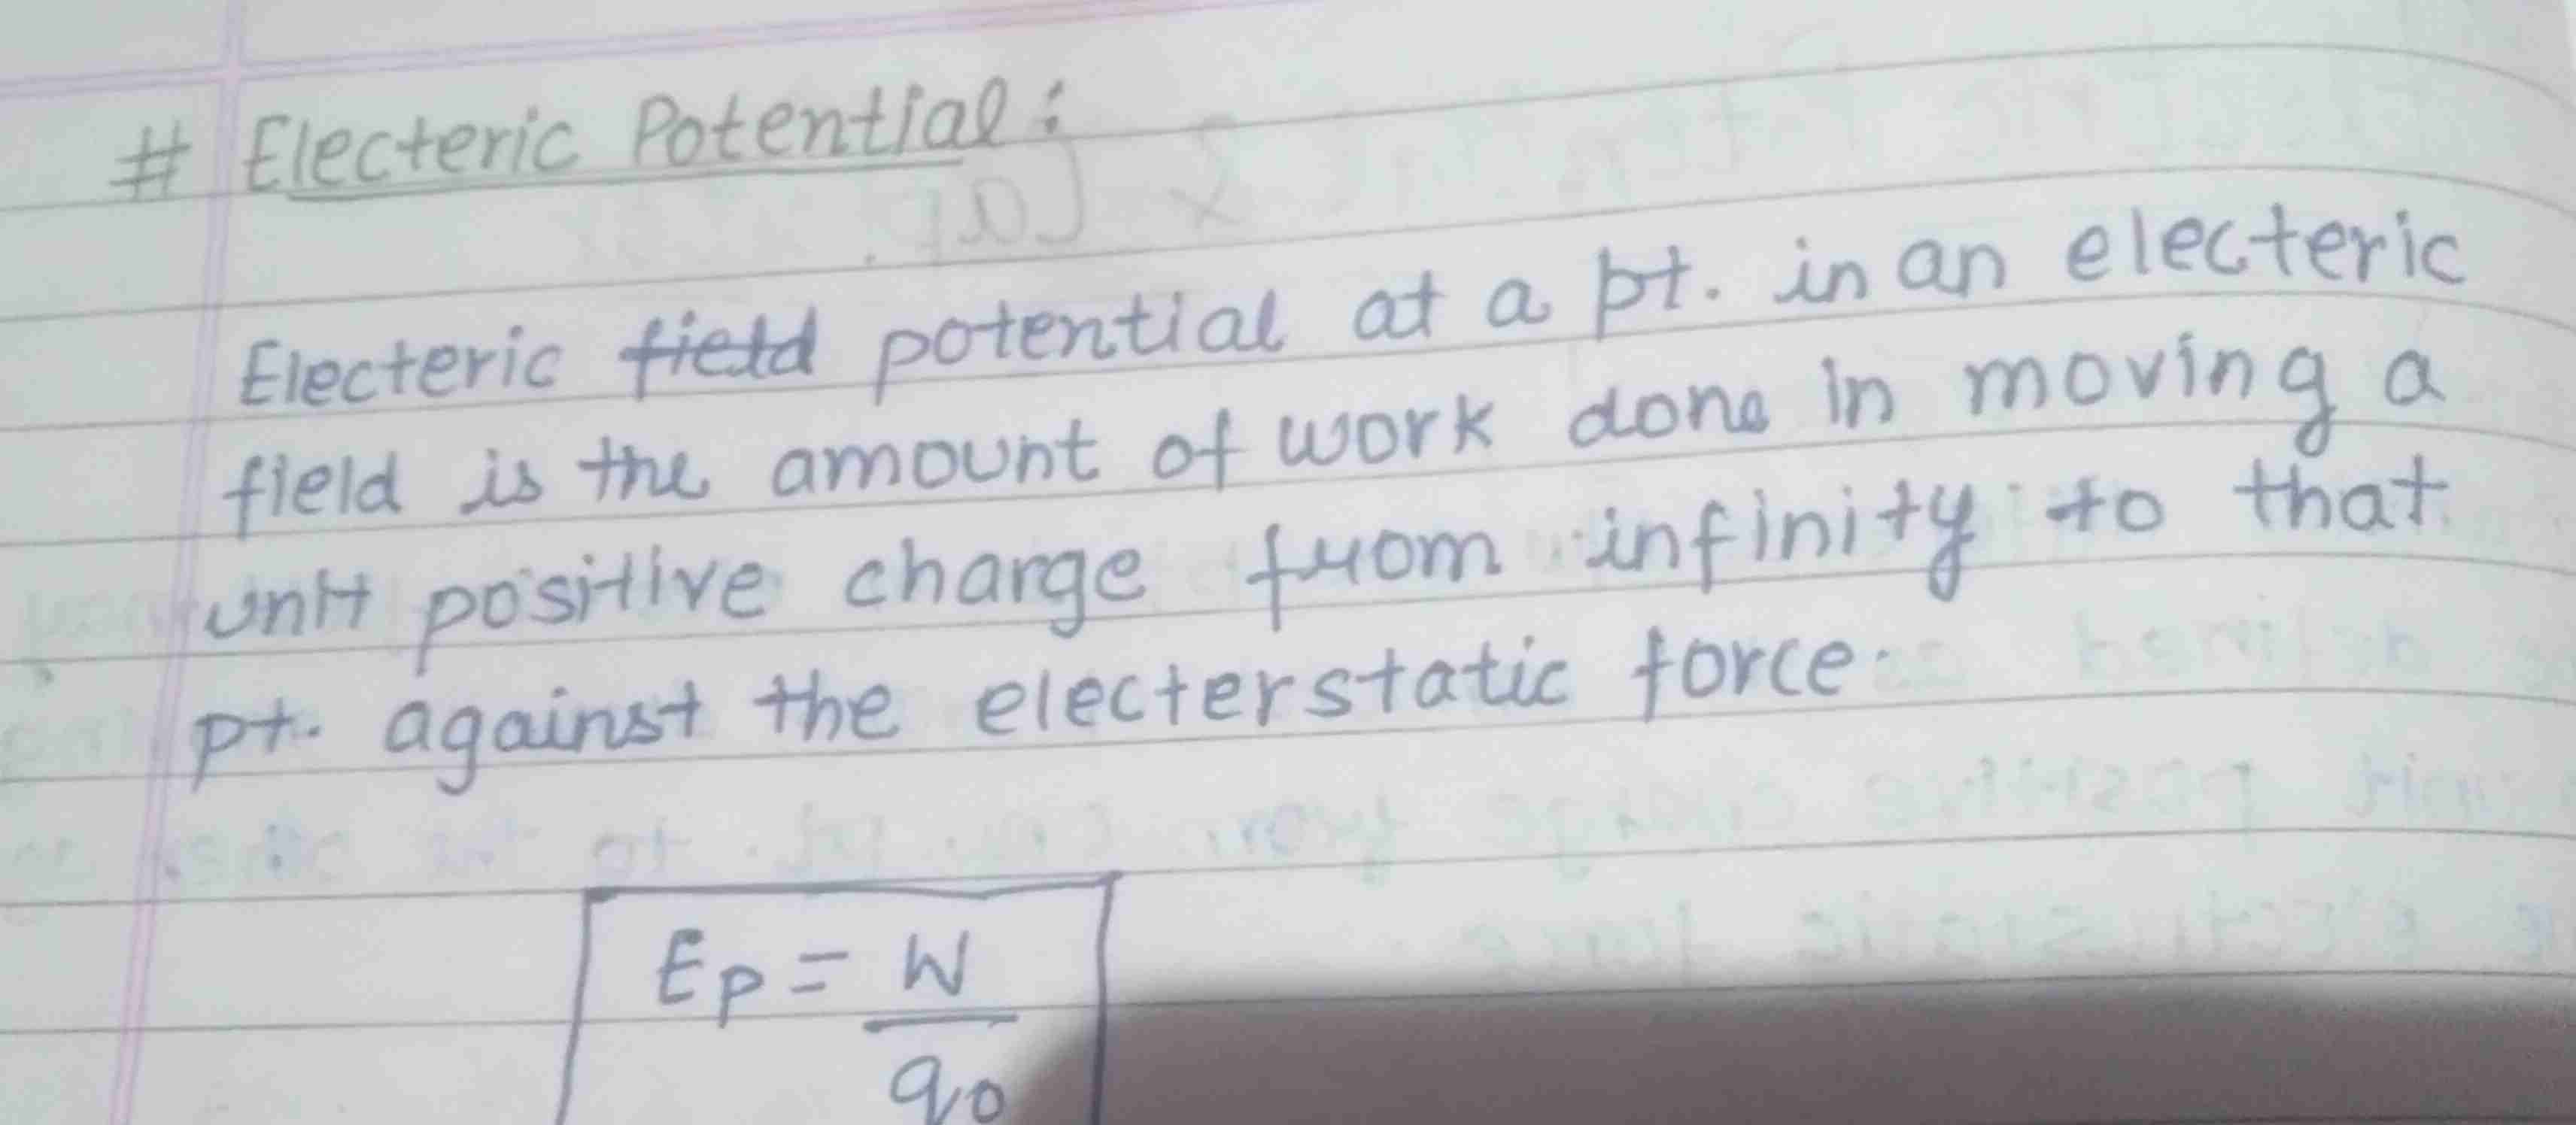 # Electeric Potential:
Electeric field potential at a pt. in an electeric
field is the amount of work done in moving a
unit positive charge from infinity to that
pt. against the electerstatic force.
Ep = W
q0